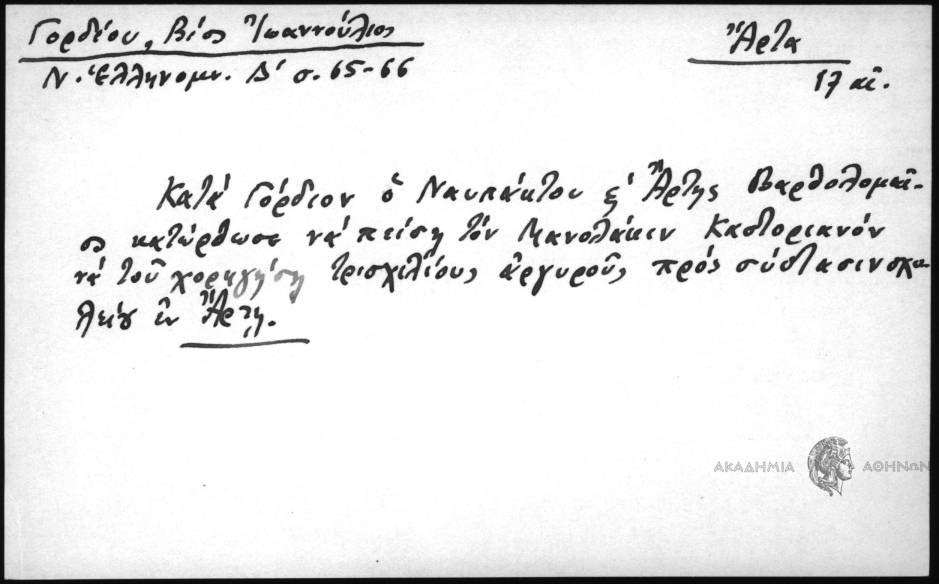 Γορδίου, Βίος Ἰωαννούλιος
Ν. Ἑλληνομν. Δ' σ. 65-66
Ἄρτα
17 αἰ.
Κατά Γόρδιον ὁ Ναυπάκτου & Ἄρτης Βαρθολομαῖ-
ος κατώρθωσε νά πείσῃ τόν Μανολάκιν Καστοριανόν
νά τοῦ χορηγήσῃ τρισχιλίους ἀργυροῦς πρός σύστασιν σχο-
λείου ἐν Ἄρτῃ.
ΑΚΑΔΗΜΙΑ ΑΘΗΝΩΝ